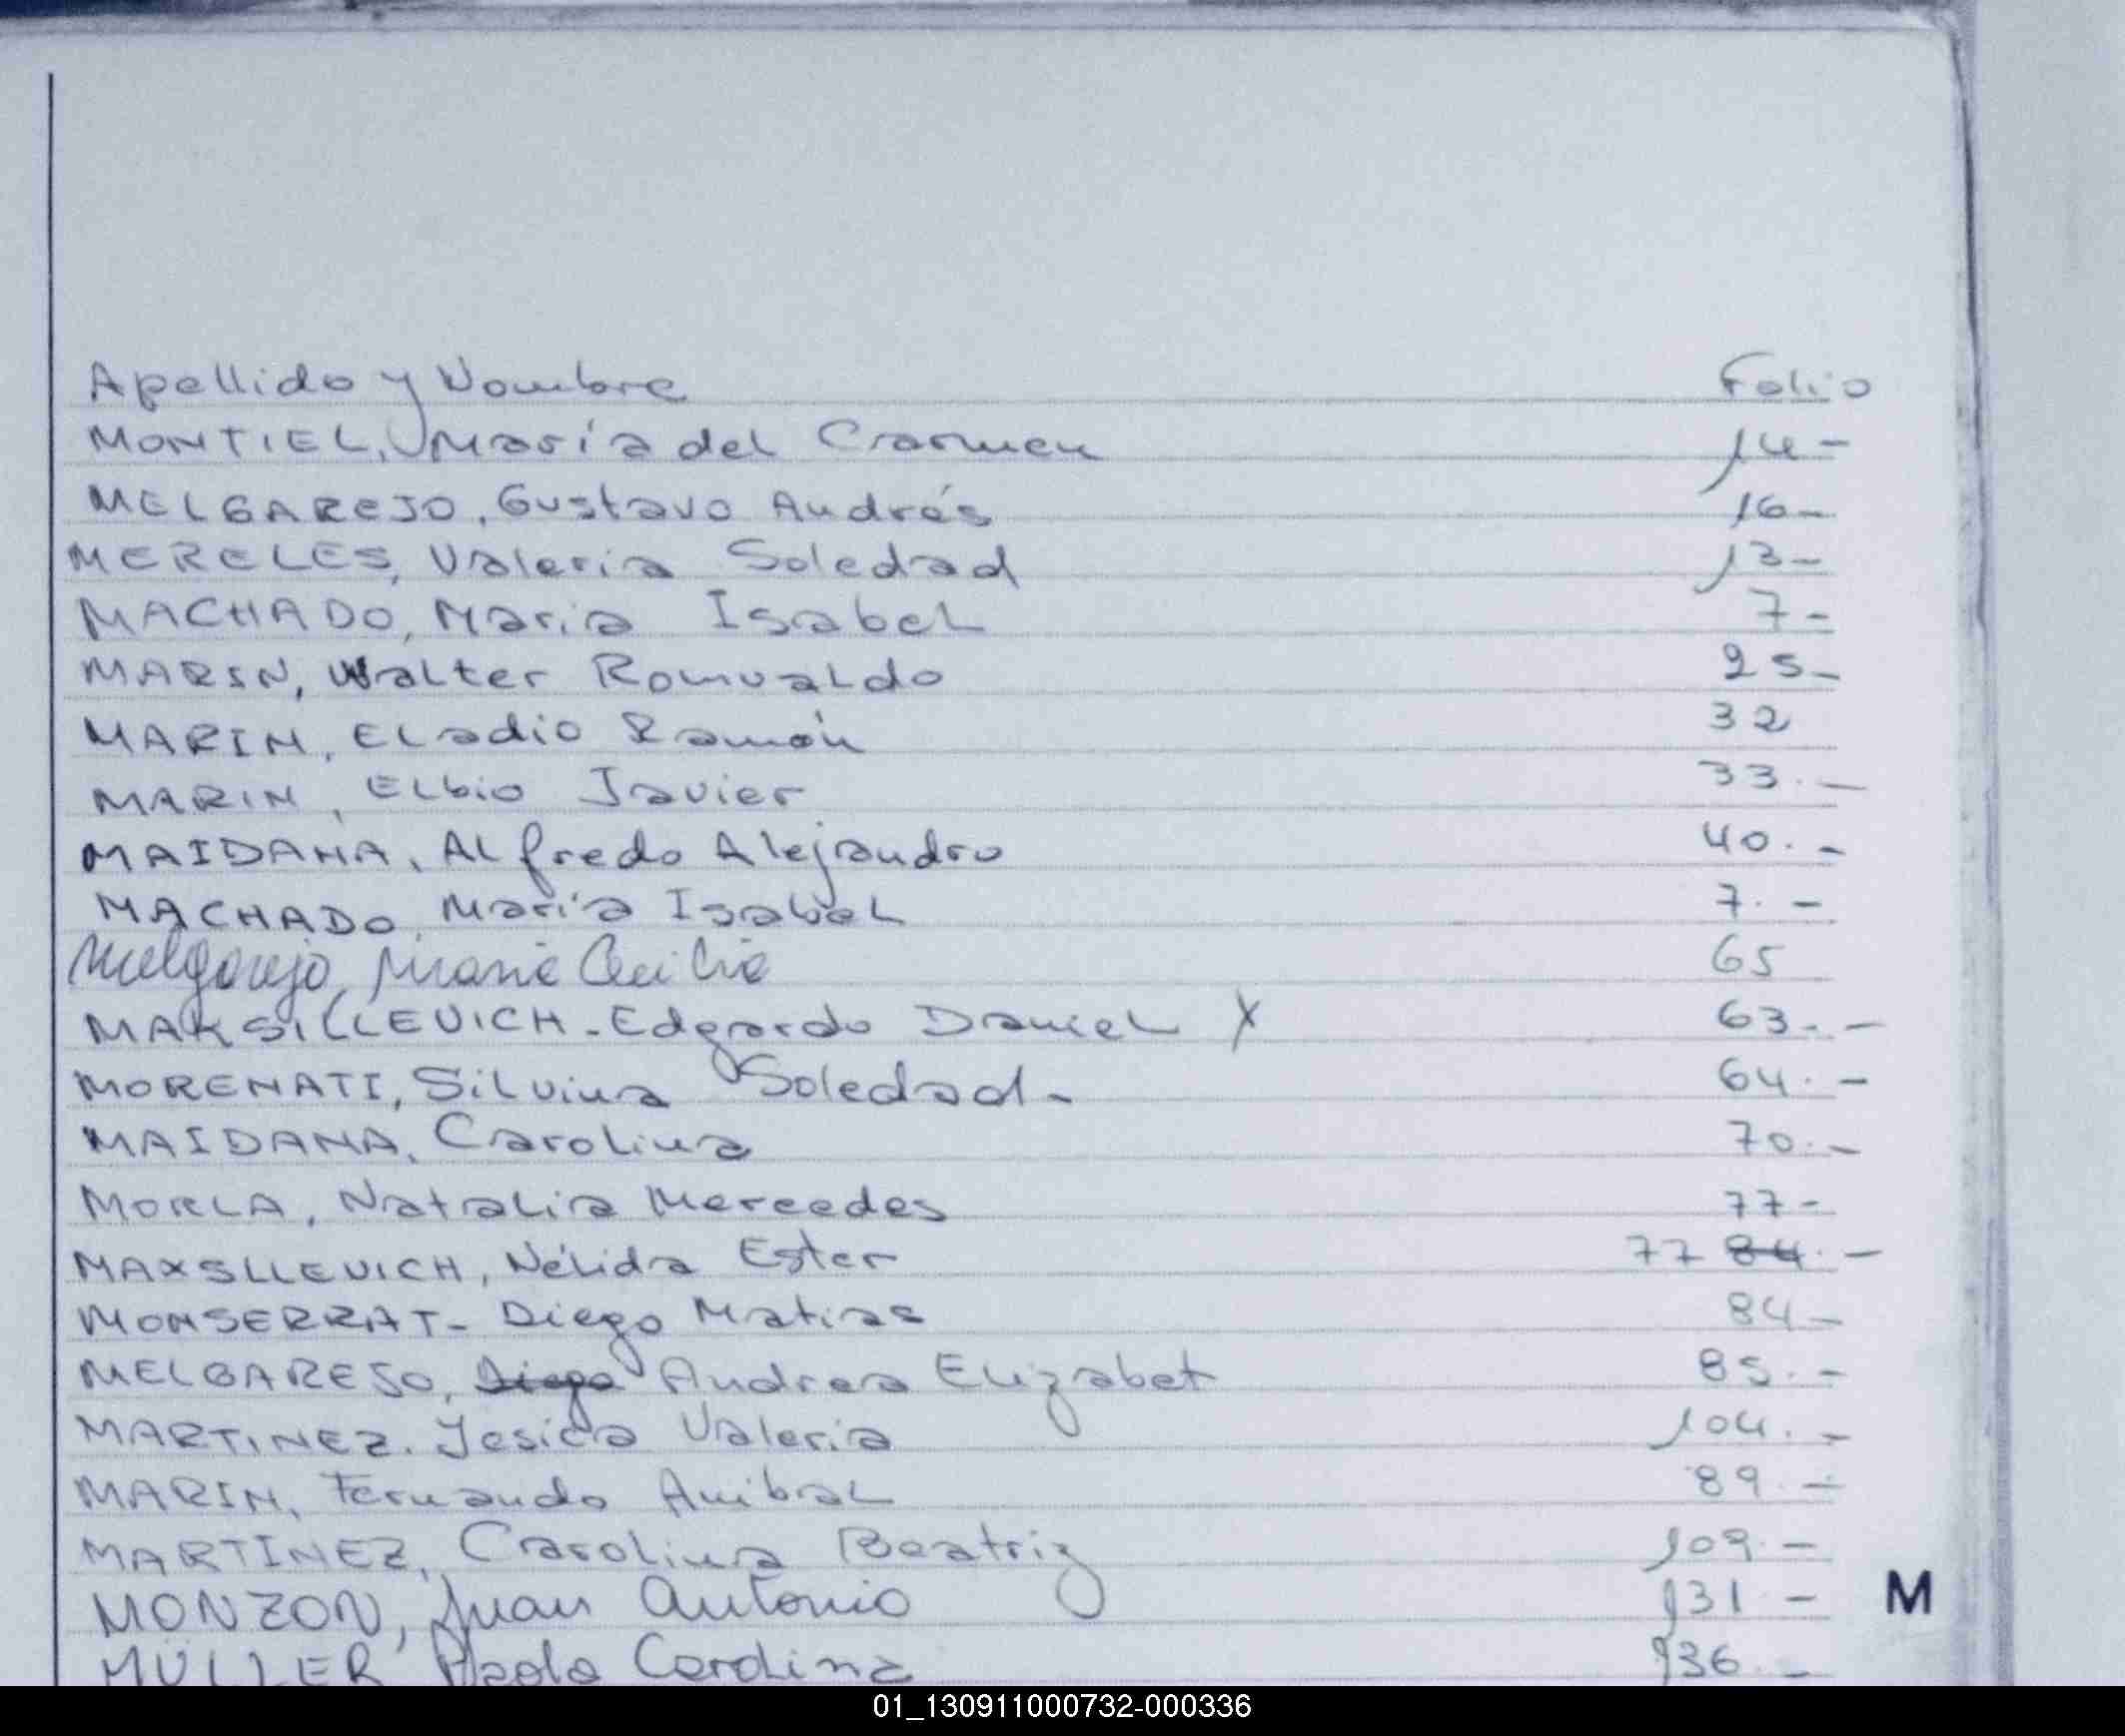 Apellido y Nombre Folio
MONTIEL, María del Carmen 14-
MELGAREJO, Gustavo Andrés 16-
MERELES, Valeria Soledad 13-
MACHADO, Maria Isabel 7-
MARIN, Walter Romualdo 25-
MARIN, Eladio Ramón 32
MARIN, Elbio Javier 33.-
MAIDANA, Alfredo Alejandro 40.-
MACHADO, María Isabel 7.-
Melgarejo, María Cecilia 65
MAKSILLEVICH-Edgardo Daniel X 63.-
MORENATI, Silvina Soledad- 64.-
MAIDANA, Carolina 70.-
MORLA, Natalia Mercedes 77-
MAXSLLEVICH, Nélida Ester 77 84.-
MONSERRAT- Diego Matias 84-
MELGAREJO, Diego Andrea Elizabet 85.-
MARTINEZ. Jesica Valeria 104.-
MARIN, Fernando Anibal 89.-
MARTINEZ, Carolina Beatriz 109.-
MONZON, Juan Antonio 131-
M
MÜLLER Paola Carolina 136.-
01_130911000732-000336